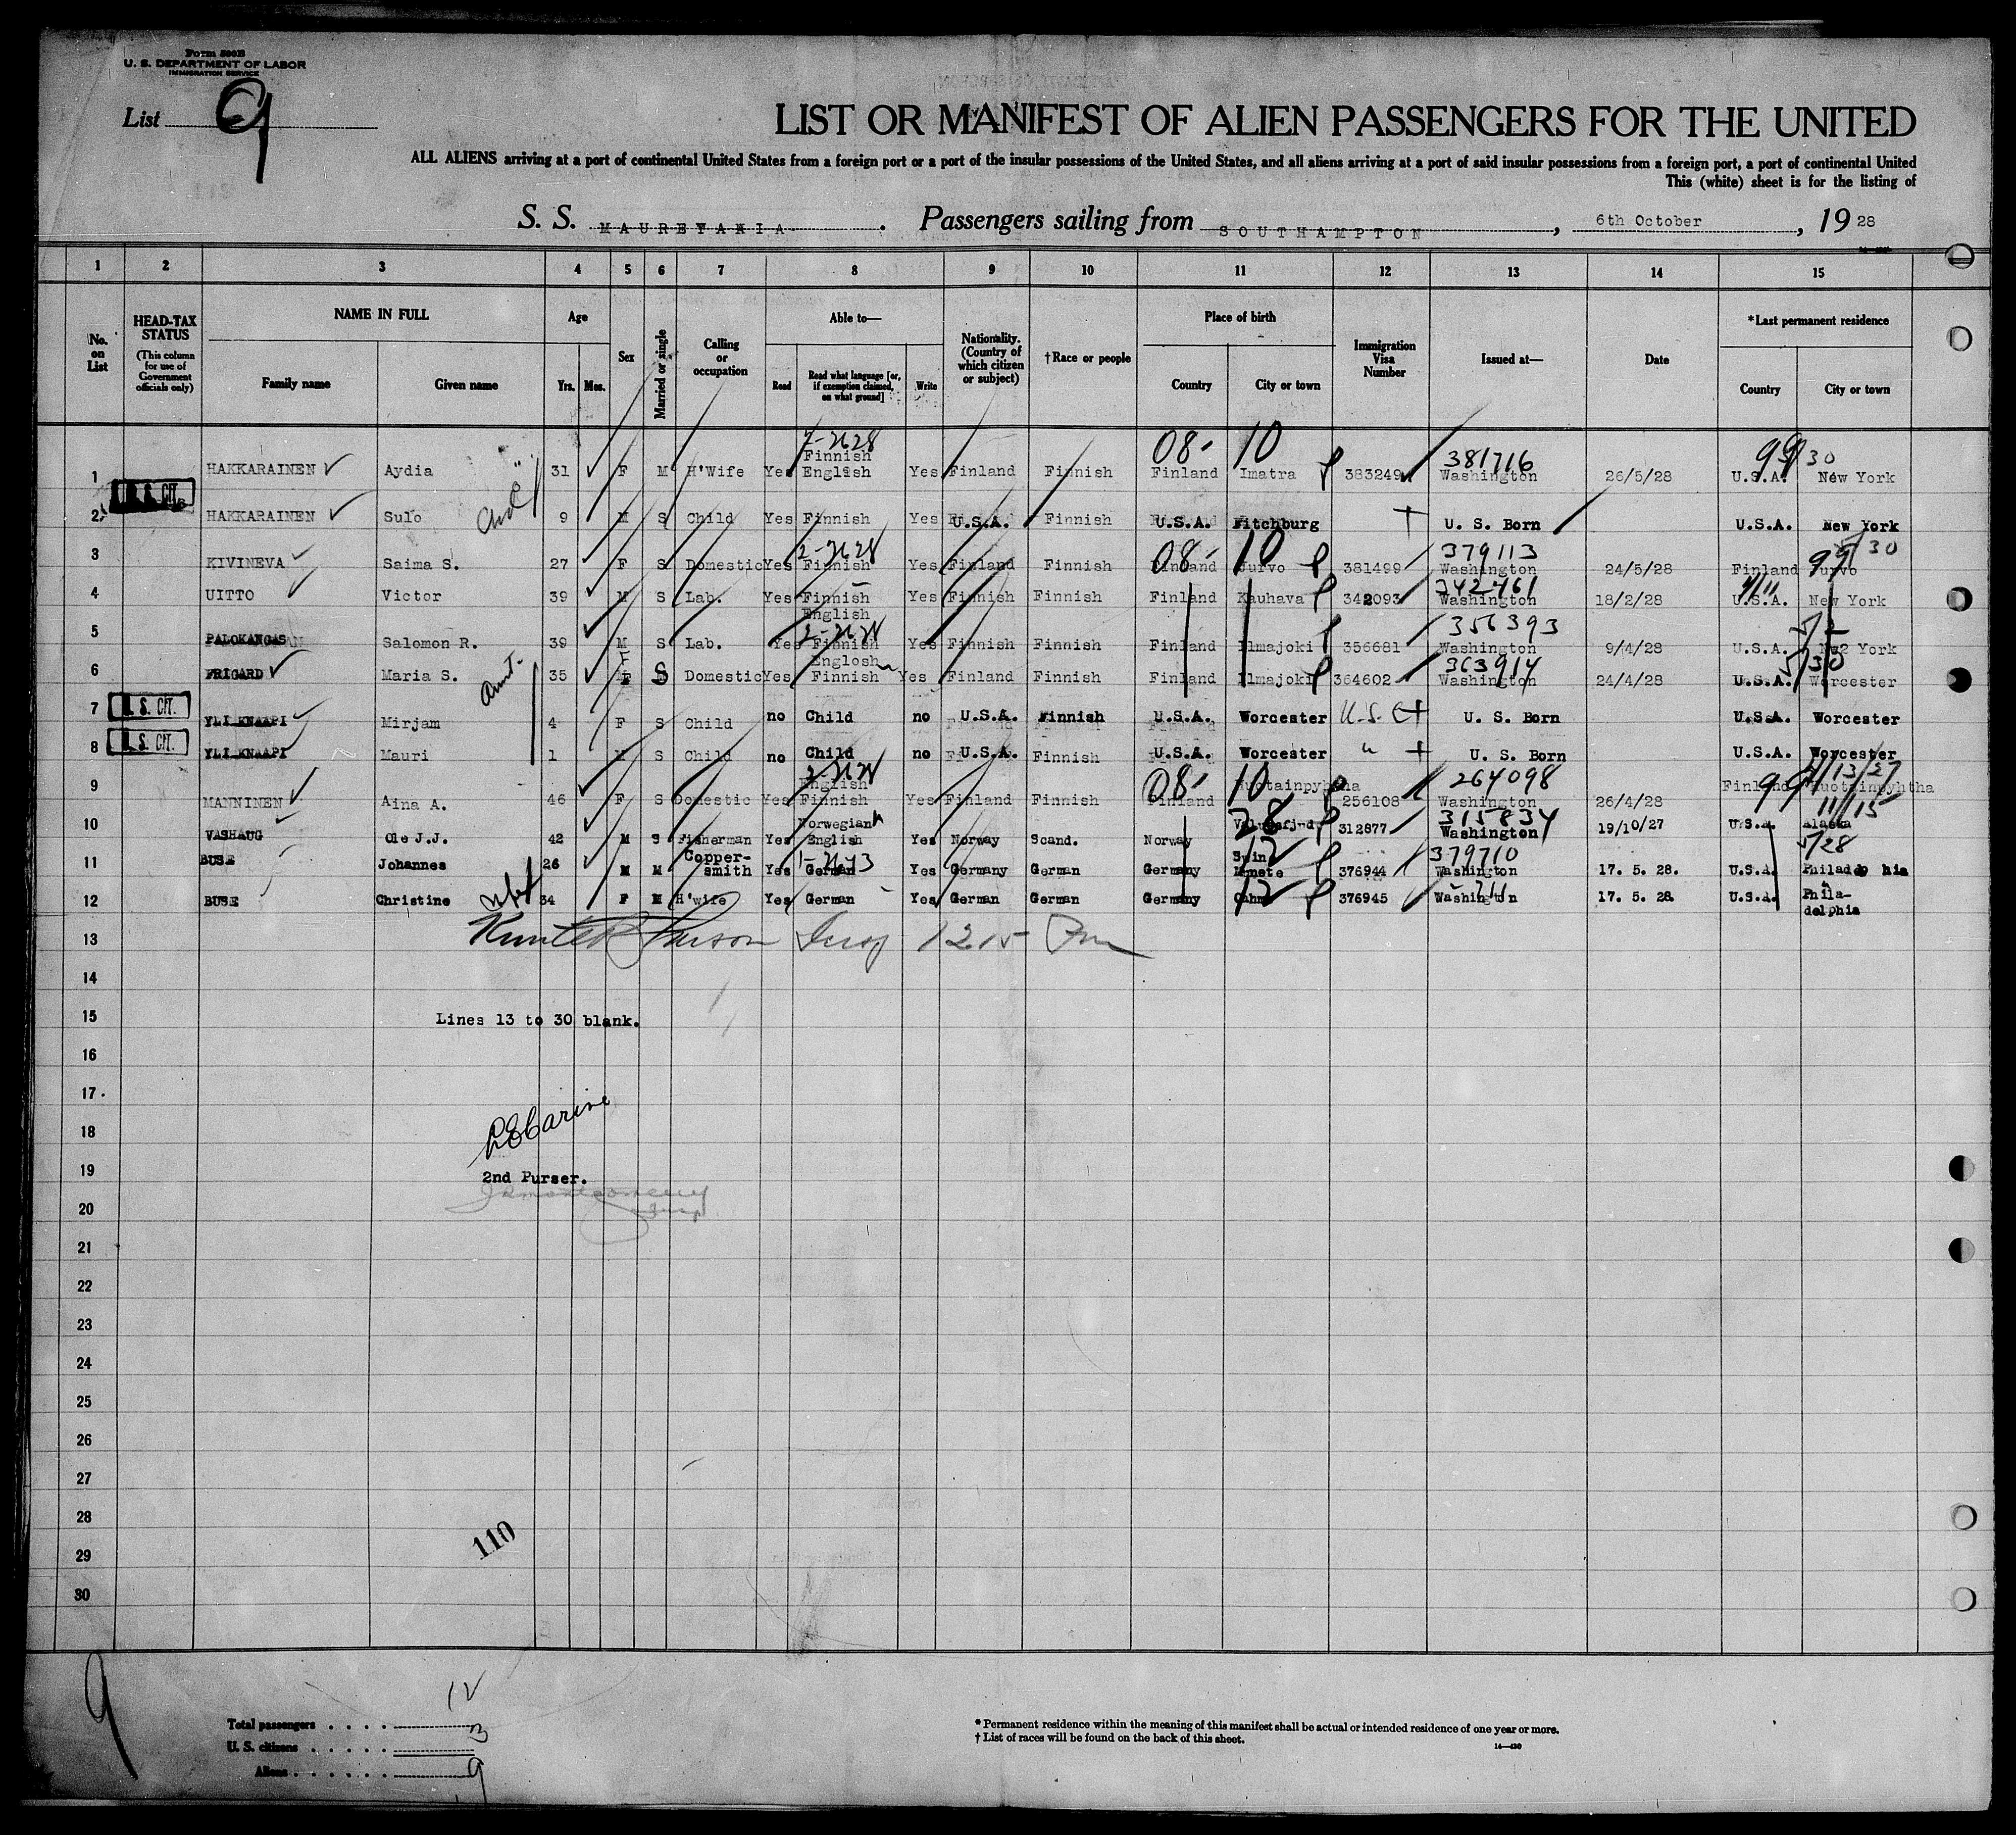 Form 500B
U. S. DEPARTMENT OF LABOR
IMMIGRATION SERVICE
List 9
LIST OR MANIFEST OF ALIEN PASSENGERS FOR THE UNITED
ALL ALIENS arriving at a port of continental United States from a foreign port or a port of the insular possessions of the United States, and all aliens arriving at a port of said insular possessions from a foreign port, a port of continental United
This (white) sheet is for the listing of
S. S. MAURETANIA. Passengers sailing from SOUTHAMPTON, 6th October, 1928
1 2 3 4 5 6 7 8 9 10 11 12 13 14 15
No. on List
HEAD-TAX STATUS (This column for use of Government officials only)
NAME IN FULL Family name Given name
Age Yrs. Mos.
Sex
Married or single
Calling or occupation
Able to— Read Read what language [or, if exemption claimed, on what ground] Write
Nationality. (Country of which citizen or subject)
†Race or people
Place of birth Country City or town
Immigration Visa Number
Issued at—
Date
*Last permanent residence Country City or town
1 HAKKARAINEN Aydia 31 F M H'Wife Yes Finnish English Yes Finland Finnish 08- 10 Finland Imatra 383249 381716 Washington 26/5/28 99 30 U.S.A. New York
U. S. CIT.
2 HAKKARAINEN Sulo 9 M S Child Yes Finnish Yes U.S.A. Finnish U.S.A. Fitchburg U. S. Born U.S.A. New York
3 KIVINEVA Saima S. 27 F S Domestic Yes 2-2628 Finnish Yes Finland Finnish 08- 10 Finland Jurvo 381499 379113 Washington 24/5/28 Finland 99 30 Jurvo
4 UITTO Victor 39 M S Lab. Yes Finnish English Yes Finnish Finnish Finland Kauhava 342093 342461 Washington 18/2/28 U.S.A. New York
5 PALOKANGAS Salomon R. 39 M S Lab. Yes Finnish Yes Finnish Finnish Finland Ilmajoki 356681 356393 Washington 9/4/28 U.S.A. New York
6 FRIGARD Maria S. 35 F S Domestic Yes Englosh Finnish Yes Finland Finnish Finland Ilmajoki 364602 363914 Washington 24/4/28 U.S.A. 30 Worcester
Aunt
7 U. S. CIT. YLI KNAAPI Mirjam 4 F S Child no Child no U.S.A. Finnish U.S.A. Worcester U.S.C U. S. Born U.S.A. Worcester
8 U. S. CIT. YLI KNAAPI Mauri 1 M S Child no Child no U.S.A. Finnish U.S.A. Worcester " U. S. Born U.S.A. Worcester
9 MANNINEN Aina A. 46 F S Domestic Yes English Finnish Yes Finland Finnish 08- 10 Finland 256108 264098 Washington 26/4/28 Finland 99
10 VASHAUG Ole J.J. 42 M S Fisherman Yes Norwegian English Yes Norway Scand. Norway 28 312877 315834 Washington 19/10/27 U.S.A. 11/15 Alaska
11 BUSE Johannes 26 M M Coppersmith Yes German Yes Germany German Germany 12 376944 379710 Washington 17. 5. 28. U.S.A. 28 Philadelphia
12 BUSE Christine 34 F M H'wife Yes German Yes German German Germany 12 376945 711 Washington 17. 5. 28. U.S.A. Phila-
delphia
13 1215 Pm
14
15 Lines 13 to 30 blank.
16
17
18
19 2nd Purser.
20
21
22
23
24
25
26
27
28
29 110
30
9
Total passengers . . . . 12
U. S. citizens . . . . . 3
Aliens . . . . . . 9
* Permanent residence within the meaning of this manifest shall be actual or intended residence of one year or more.
† List of races will be found on the back of this sheet.
14—430